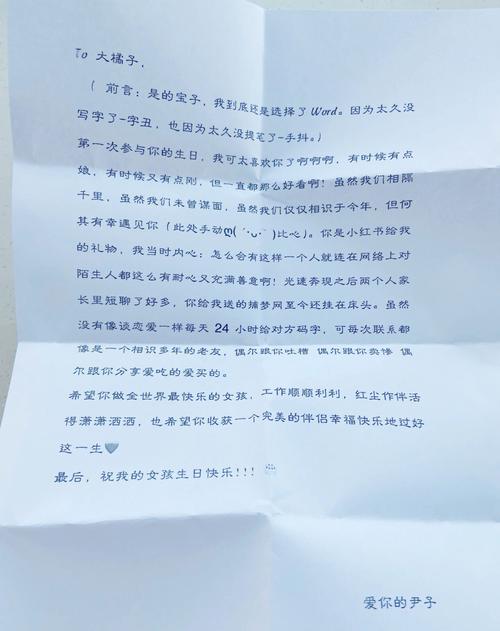 To 大橘子，
（ 前言：是的宝子，我到底还是选择了 Word。因为太久没
写字了-字丑，也因为太久没提笔了-手抖。）
第一次参与你的生日，我可太喜欢你了啊啊啊，有时候有点
娘，有时候又有点刚，但一直都那么好看啊！虽然我们相隔
千里，虽然我们未曾谋面，虽然我们仅仅相识于今年，但何
其有幸遇见你（此处手动ღ( ´･ᴗ･` )比心）。你是小红书给我
的礼物，我当时内心：怎么会有这样一个人就连在网络上对
陌生人都这么有耐心又充满善意啊！光速奔现之后两个人家
长里短聊了好多，你给我送的捕梦网至今还挂在床头。虽然
没有像谈恋爱一样每天 24 小时给对方码字，可每次联系都
像是一个相识多年的老友，偶尔跟你吐槽 偶尔跟你卖惨 偶
尔跟你分享爱吃的爱买的。
希望你做全世界最快乐的女孩，工作顺顺利利，红尘作伴活
得潇潇洒洒，也希望你收获一个完美的伴侣幸福快乐地过好
这一生🩶
最后，祝我的女孩生日快乐！！！🎂
爱你的尹子